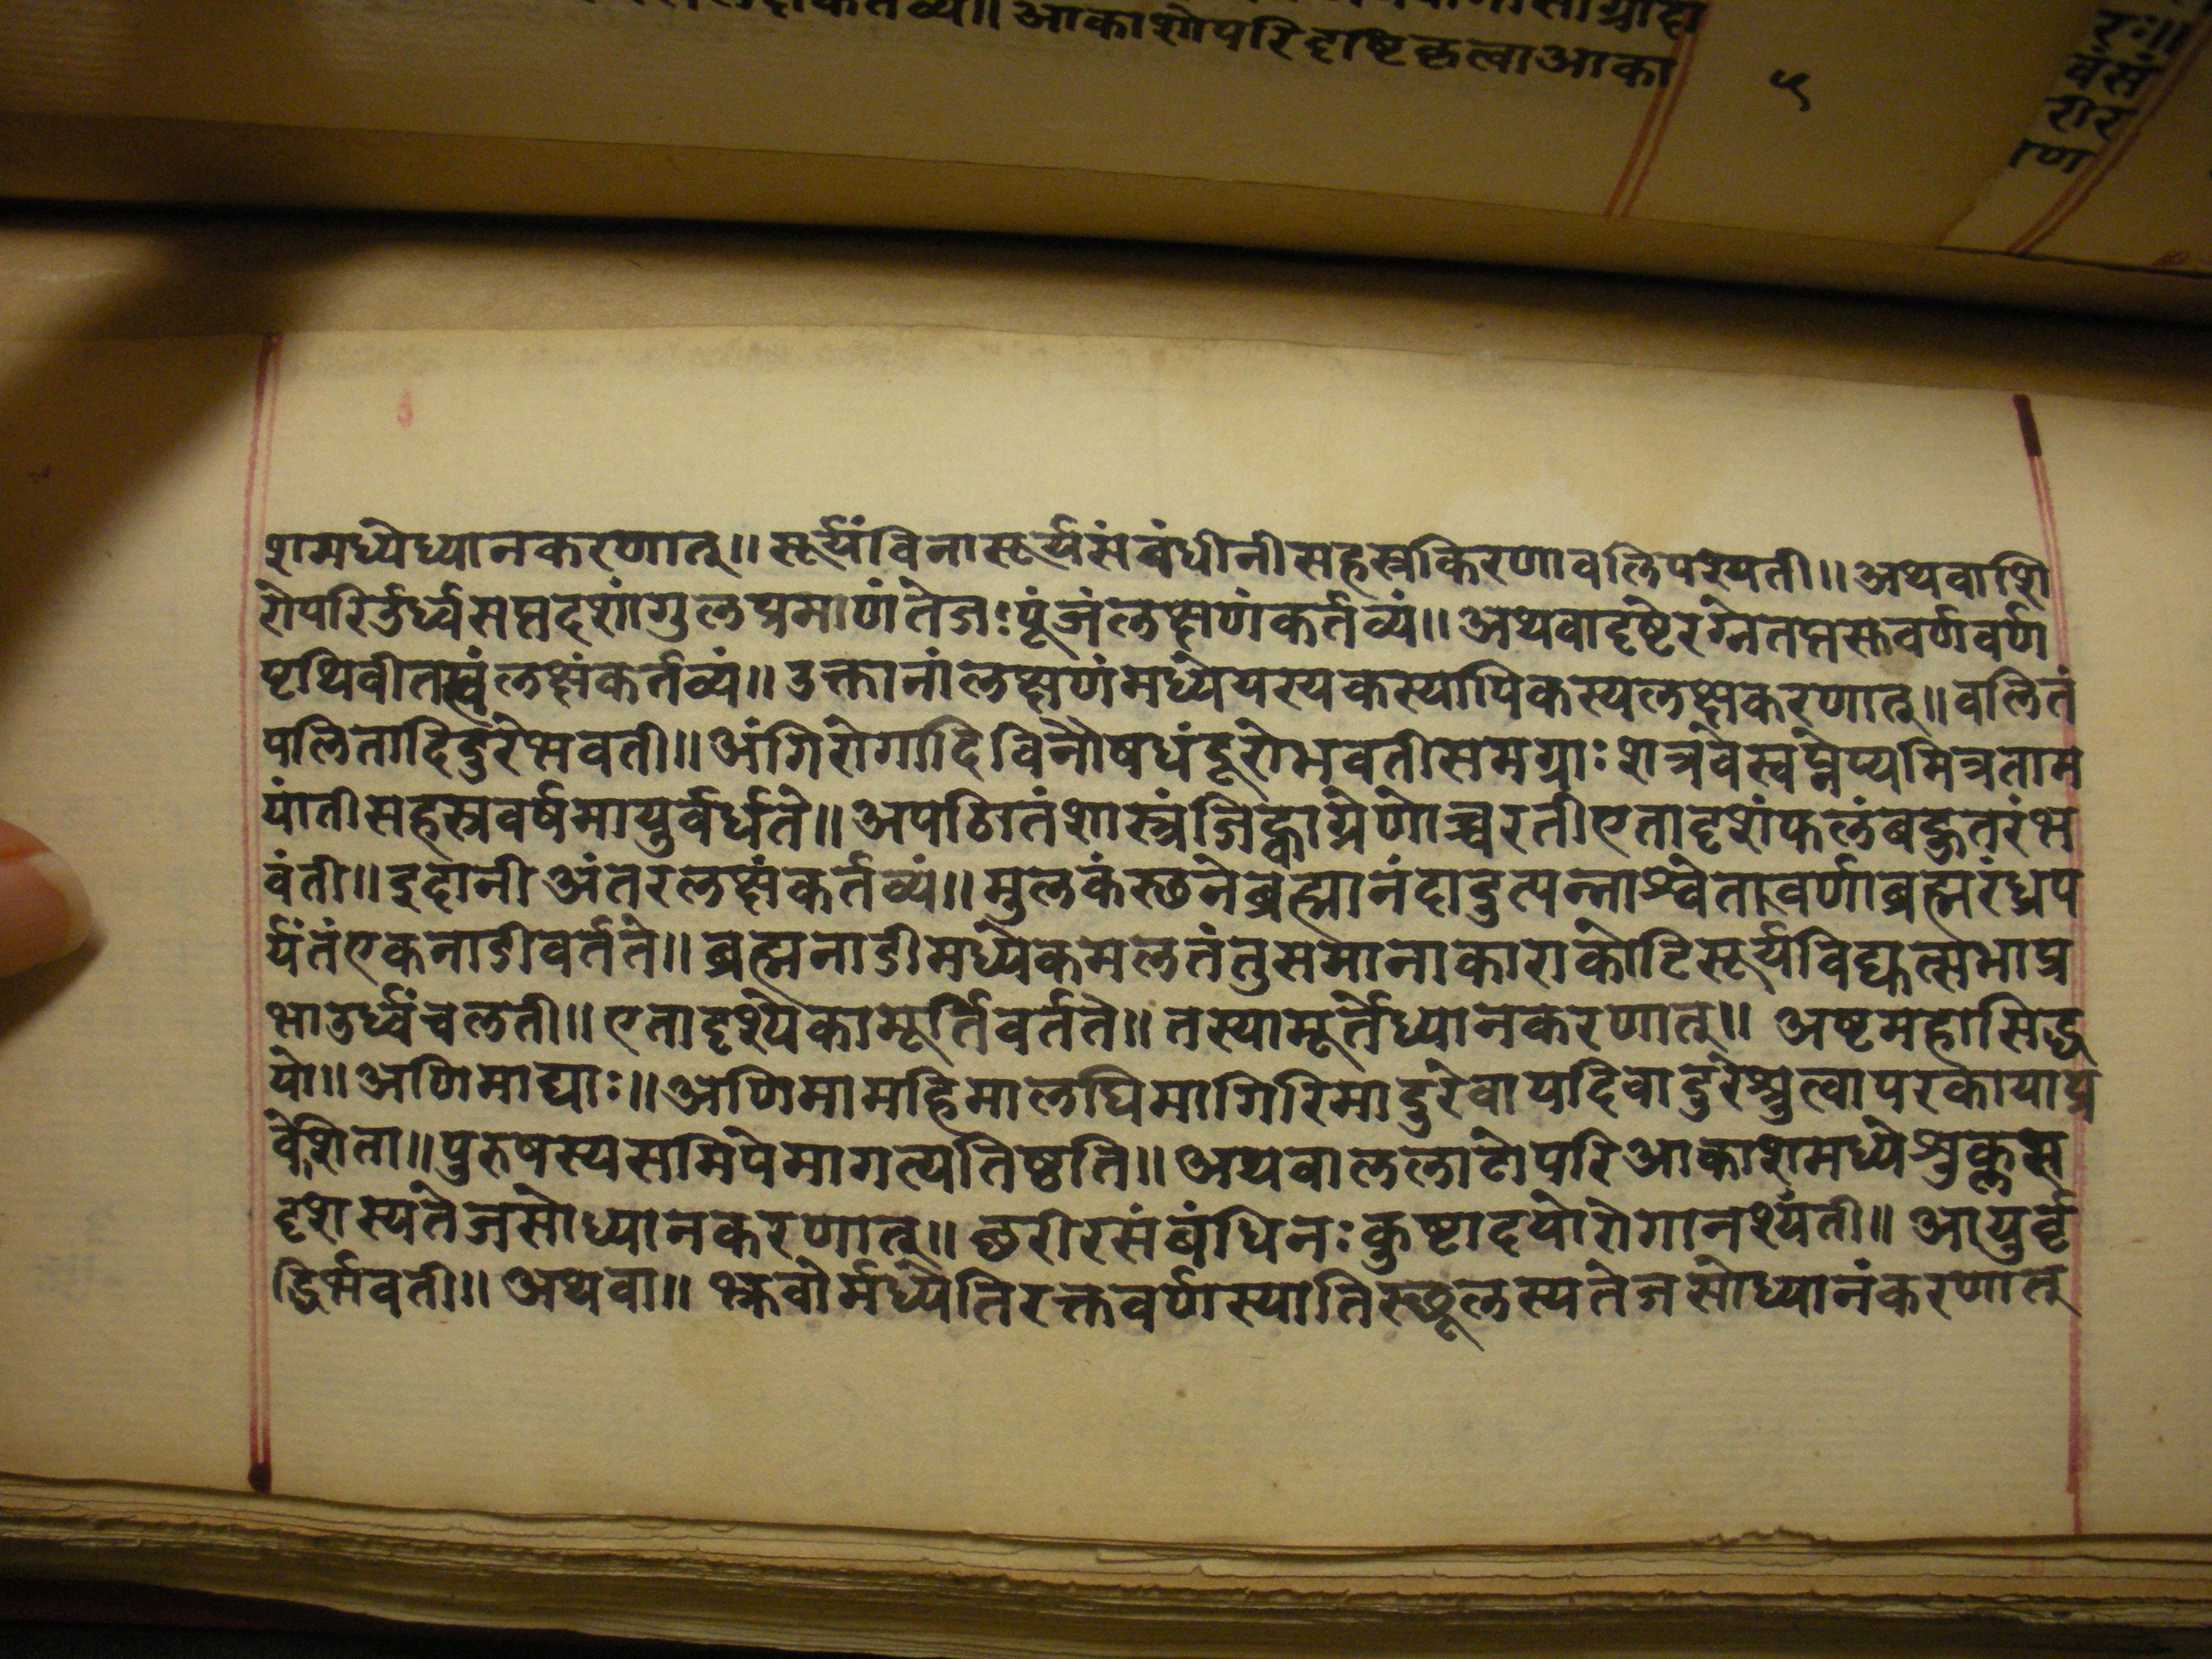 आकाशोपरिदृष्टिकृत्वाआका
५
शमध्येध्यानकरणात्॥ सूर्यंविनासूर्यसंबंधीनीसहस्रकिरणावलिपश्यती॥ अथवाशि
रोपरिर्उर्ध्वसप्तदशांगुलप्रमाणंतेजःपूंजंलक्षणंकर्तव्यं॥ अथवादृष्टेरग्नेतप्तस्तवर्णवर्ण
पृथिवीतत्वंलक्षंकर्तव्यं॥ उक्तानांलक्षणंमध्येयस्यकस्यापिकस्यलक्षकरणात्॥ वलितं
पलितादिदुरेभवती॥ अंगिरोगादिविनौषधंदूरोभवतीसमग्राःशत्रवेस्वप्नेप्यमित्रताम
यांतीसहस्रवर्षमायुर्वर्धते॥ अपठितंशास्त्रंजिह्वाग्रेणोच्चरतीएतादृशंफलंबहुतरंभ
वंती॥ इदानीअंतरलक्षंकर्तव्यं॥ मुलकंस्छनेब्रह्मानंदादुत्पन्नाश्वेतावर्णाब्रह्मरंध्रप
र्यंतंएकनाडीवर्तते॥ ब्रह्मनाडीमध्येकमलतंतुसमानाकाराकोटिसूर्यविद्युत्सभाप्र
भाउर्ध्वंचलती॥ एतादृश्येकामूर्तिवर्तते॥ तस्यामूर्तेध्यानकरणात्॥ अष्टमहासिद्ध
यो॥ अणिमाद्याः॥ अणिमामहिमालघिमागिरिमादुरेवायदिवादुरेश्रुत्वापरकायाप्र
वेशिता॥ पुरुषस्यसमिपेमागत्यतिष्ठति॥ अथवाललाटोपरिआकाशमध्येश्रुक्लस
दृशस्यतेजसोध्यानकरणात्॥ छरीरसंबंधिनःकुष्टादयोरोगानश्यंती॥ आयुर्वृ
द्धिर्भवती॥ अथवा॥ भ्रुवोर्मध्येतिरक्तवर्णस्यातिस्छूलस्यतेजसोध्यानंकरणात्